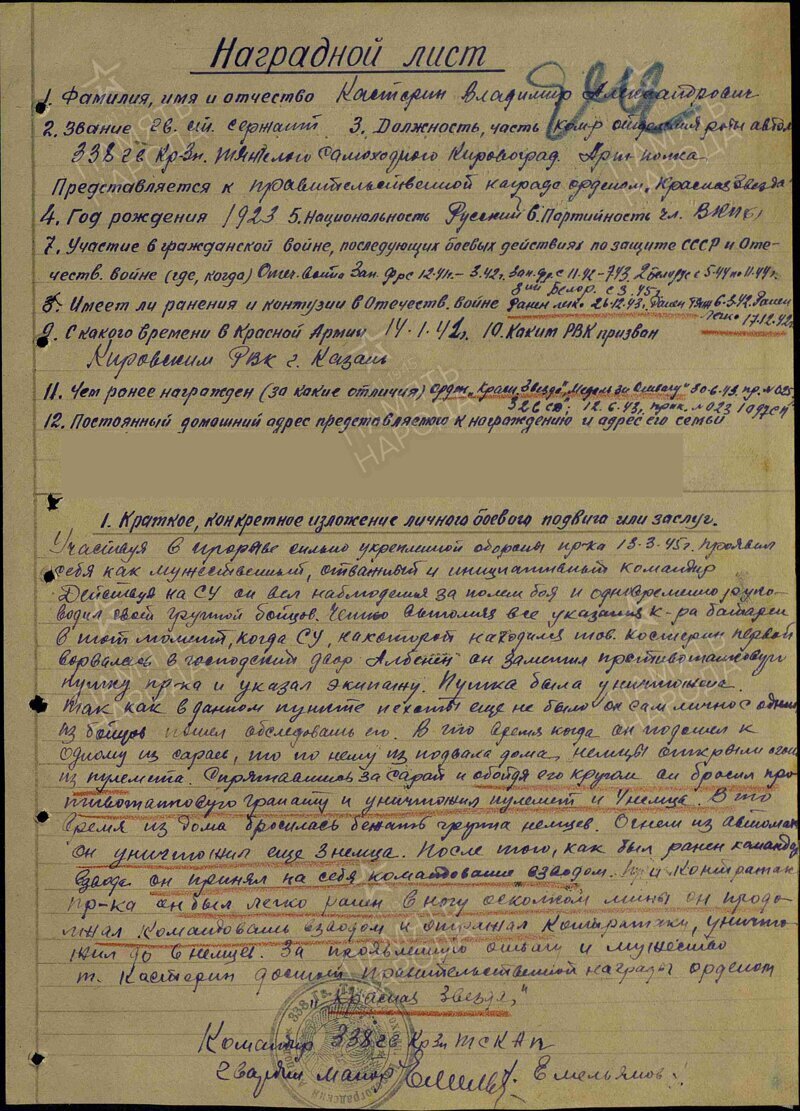 Наградной лист
1. Фамилия, имя и отчество Кастерин Владимир Александрович
2. Звание гв. ст. сержант 3. Должность, часть ком-р отделения роты автом.
338 гв Кр Зн. тяжелого самоходного Кировоград. Арт полка
Представляется к правительственной награда орденом „Красная Звезда“
4. Год рождения 1923 5. Национальность Русский 6. Партийность чл. ВКП(б)
7. Участие в гражданской войне, последующих боевых действиях по защите СССР и Оте-
честв. войне (где, когда) Отеч. война Зап. фр с 12-41г. - 3.42г. Зап. фр. с 11.42 - 7.43. 2 Белрус с 5-44 по 11-44г.
3ий Белор. с 3.45г.
8. Имеет ли ранения и контузии в Отечеств. войне Ранен легко 26.12.43. Ранен 6.3.42. Ранен
легко 17.12.42г
9. С какого времени в Красной Армии 14.1.42г. 10. Каким РВК призван
Кировским РВК г. Казань
11. Чем ранее награжден (за какие отличия) орден „Красн Звезда“, Медаль За Отвагу“ 30.6.43. пр. № 025
326 сд; 12.6.43. прик. № 023
12. Постоянный домашний адрес представляемого к награждению и адрес его семьи
1. Краткое, конкретное изложение личного боевого подвига или заслуг.
Участвуя в прорыве сильно укрепленной обороны пр-ка 13.3.45г. проявил
себя как мужественный, отважный и инициативный командир
Действуя на СУ он вел наблюдения за полем боя и одновременно руко-
водил своей группой бойцов. Четко выполняя все указания к-ра батареи
в тот момент, когда СУ, на которой находился тов. Костерин первой
ворвалась в господский двор Альбенен он заметил противотанковую
пушку пр-ка и указал экипажу. Пушка была уничтожена.
Так как в данном пункте пехоты еще не было он сам лично с одним
из бойцов пошел обследовать его. В это время когда он подошел к
одному из сараев, то по нему из подвала дома немцы открыли огонь
из пулемета. Спрятавшись за сарай и обойдя его кругом он бросил про-
тивотанковую гранату и уничтожил пулемет и 4 немца. В это
время из дома бросилась бежать группа немцев. Огнем из автомата
он уничтожил еще 3 немца. После того, как был ранен командир
взвода он принял на себя командование взводом. При контратак.
пр-ка он был легко ранен в ногу осколком мины он продол-
жал командовать взводом и отражал контратаки, уничто-
жил до 6 немцев. За проявленную отвагу и мужество
т. Кастерин достоин правительственной награды орденом
„Красная Звезда“
Командир 338 гв Кр Зн ТСКАП
гвардии майор Емельянов
ПАМЯТЬ НАРОДА